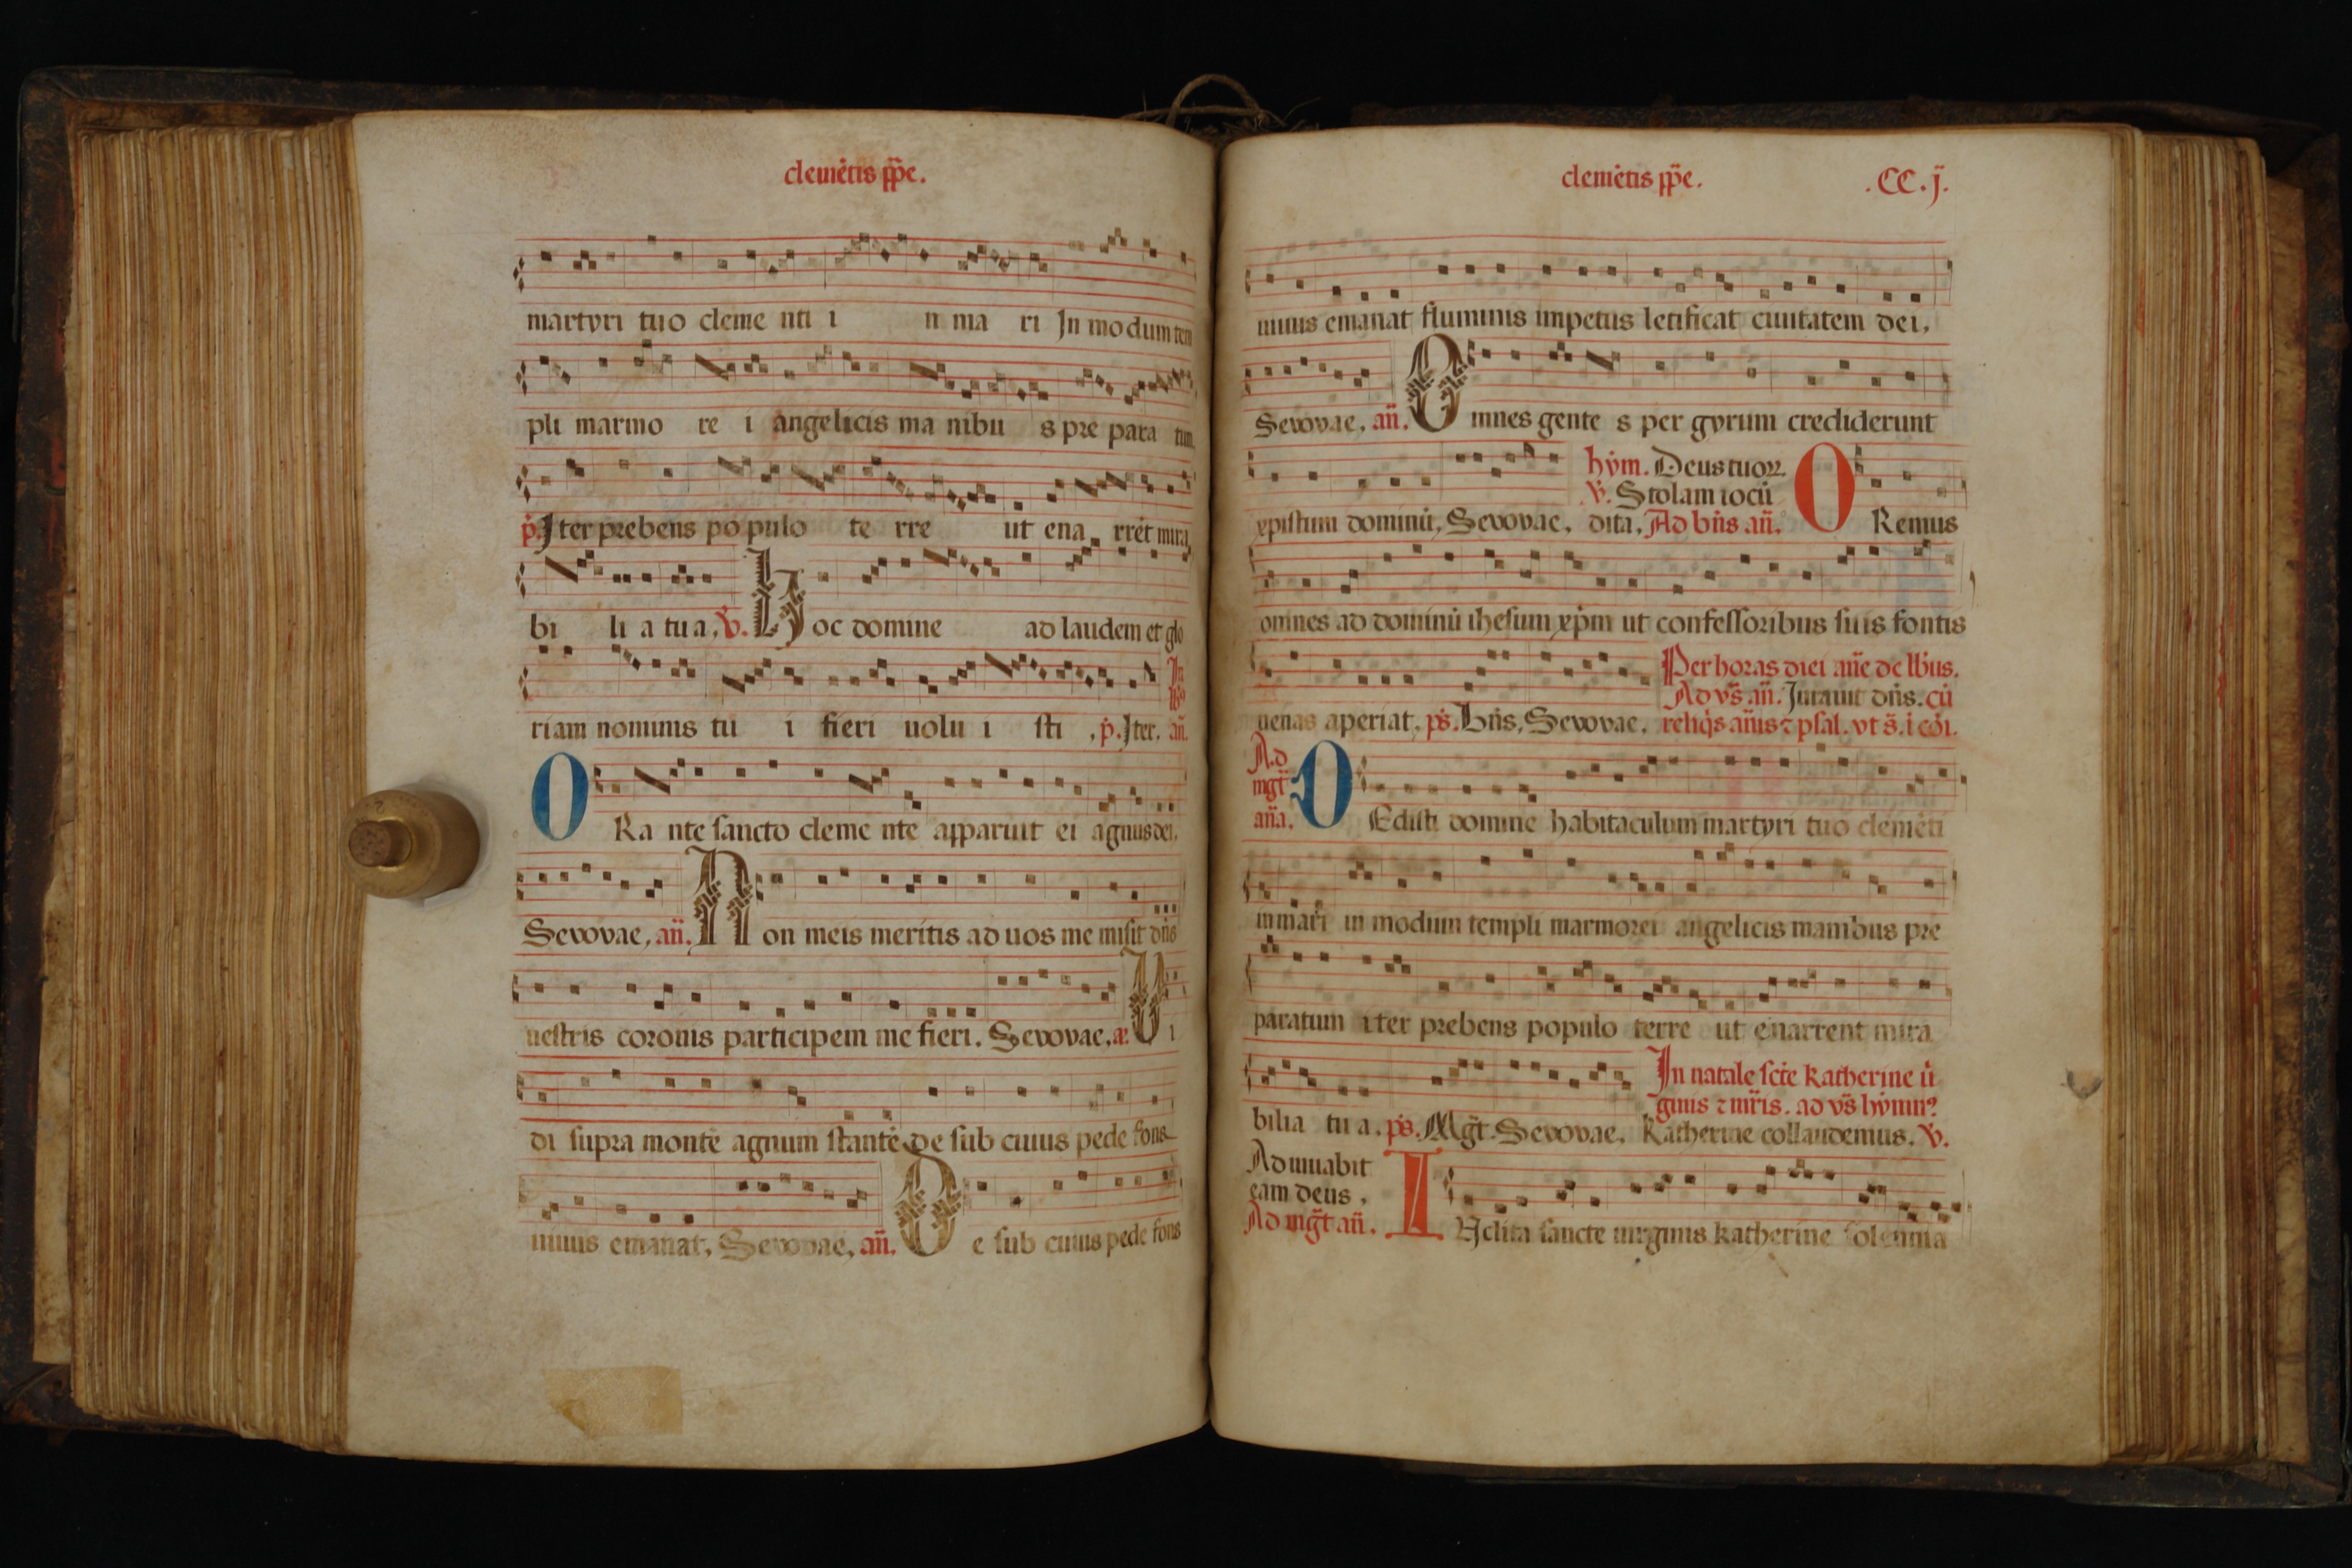 clemētis ppe.
martyri tuo cleme nti i n ma ri In modum tem
pli marmo re i angelicis ma nibu s pre para tum
p. Iter prebens po pulo te rre ut ena rrēt mira
bi li a tua, v. Hoc domine ad laudem et glo
riam nominis tu i fieri uolu i sti , p. Iter. In lb9 añ.
ORa nte sancto cleme nte apparuit ei agnus dei,
Sevovae, añ. Non meis meritis ad uos me misit dñs
uestris coronis participem me fieri. Sevovae, æ. Ui
di supra montē agnum stantē de sub cuius pede fons
uiuus emanat, Sevovae, añ. De sub cuius pede fons
clemētis ppe. .CC.j.
uiuus emanat fluminis impetus letificat ciuitatem dei,
Sevovae, añ. Omnes gente s per gyrum crediderunt
hym. Deus tuoꝝ
v. Stolam iocū
xpistum dominū, Sevovae, dita, Ad bñs añ. ORemus
omnes ad dominū ihesum xpm ut confessoribus suis fontis
Per horas diei añe de lb'us.
Ad vs añ. Iurauit dñs. cū
uenas aperiat, ps. Bñs, Sevovae, reliqs añis ⁊ psal. vt s. i coi.
Ad mgt aña. DEdisti domine habitaculum martyri tuo clemēti
in mari in modum templi marmorei angelicis manibus pre
paratum iter prebens populo terre ut enarrent mira
In natale scte Katherine ui
ginis ⁊ mris. ad vs hymn9
bilia tu a, ps. Mgt. Sevovae, Katherine collaudemus, v.
Adiuuabit
eam deus,
Ad mgt añ. INclita sancte uirginis katherine solennia